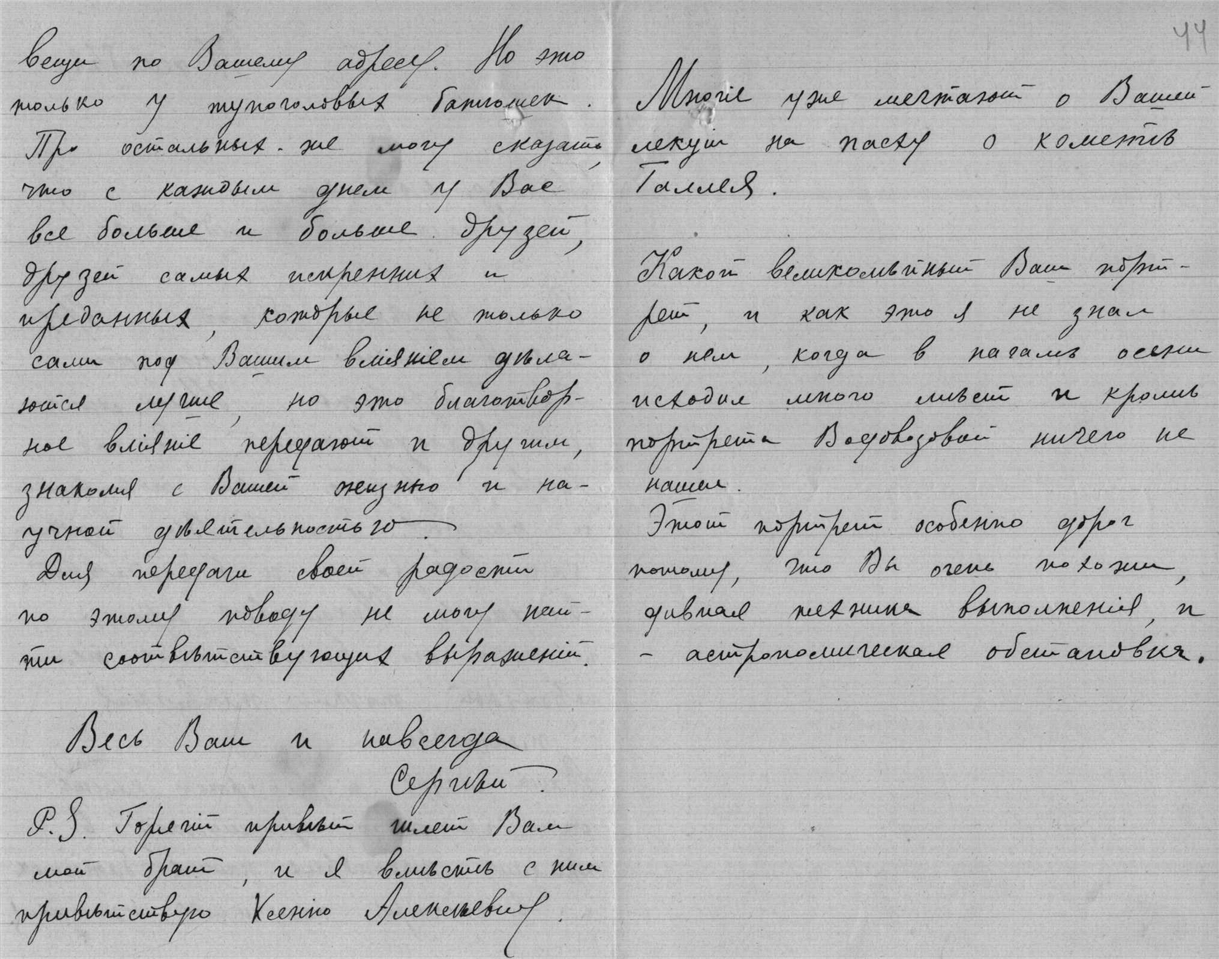 вещи по Вашему адресу. Но это
только у тупоголовых батюшек.
Про остальных-же могу сказать,
что с каждым днем у Вас
все больше и больше друзей,
друзей самых искренних и
преданных, которые не только
сами под Вашим вліяніем дѣла-
ются лучше, но это благотвор-
ное вліяніе передают и другим,
знакомя с Вашей жизнью и на-
учной дѣятельностью.
Для передачи своей радости
по этому поводу не могу най-
ти соотвѣтствующих выраженій.
Весь Ваш и навсегда
Сергѣй.
P.S. Горячій привѣт шлет Вам
мой брат, и я вмѣстѣ с ним
привѣтствую Ксенію Алексѣевну.
44
Многіе уже мечтают о Вашей
лекціи на пасху о кометѣ
Галлея.
Какой великолѣпный Ваш порт-
рет, и как это я не знал
о нем, когда в началѣ осени
исходил много мѣст и кромѣ
портрета Водовозовой ничего не
нашел.
Этот портрет особенно дорог
потому, что Вы очень похожи,
дивная техника выполненія, и
- астрономическая обстановка.